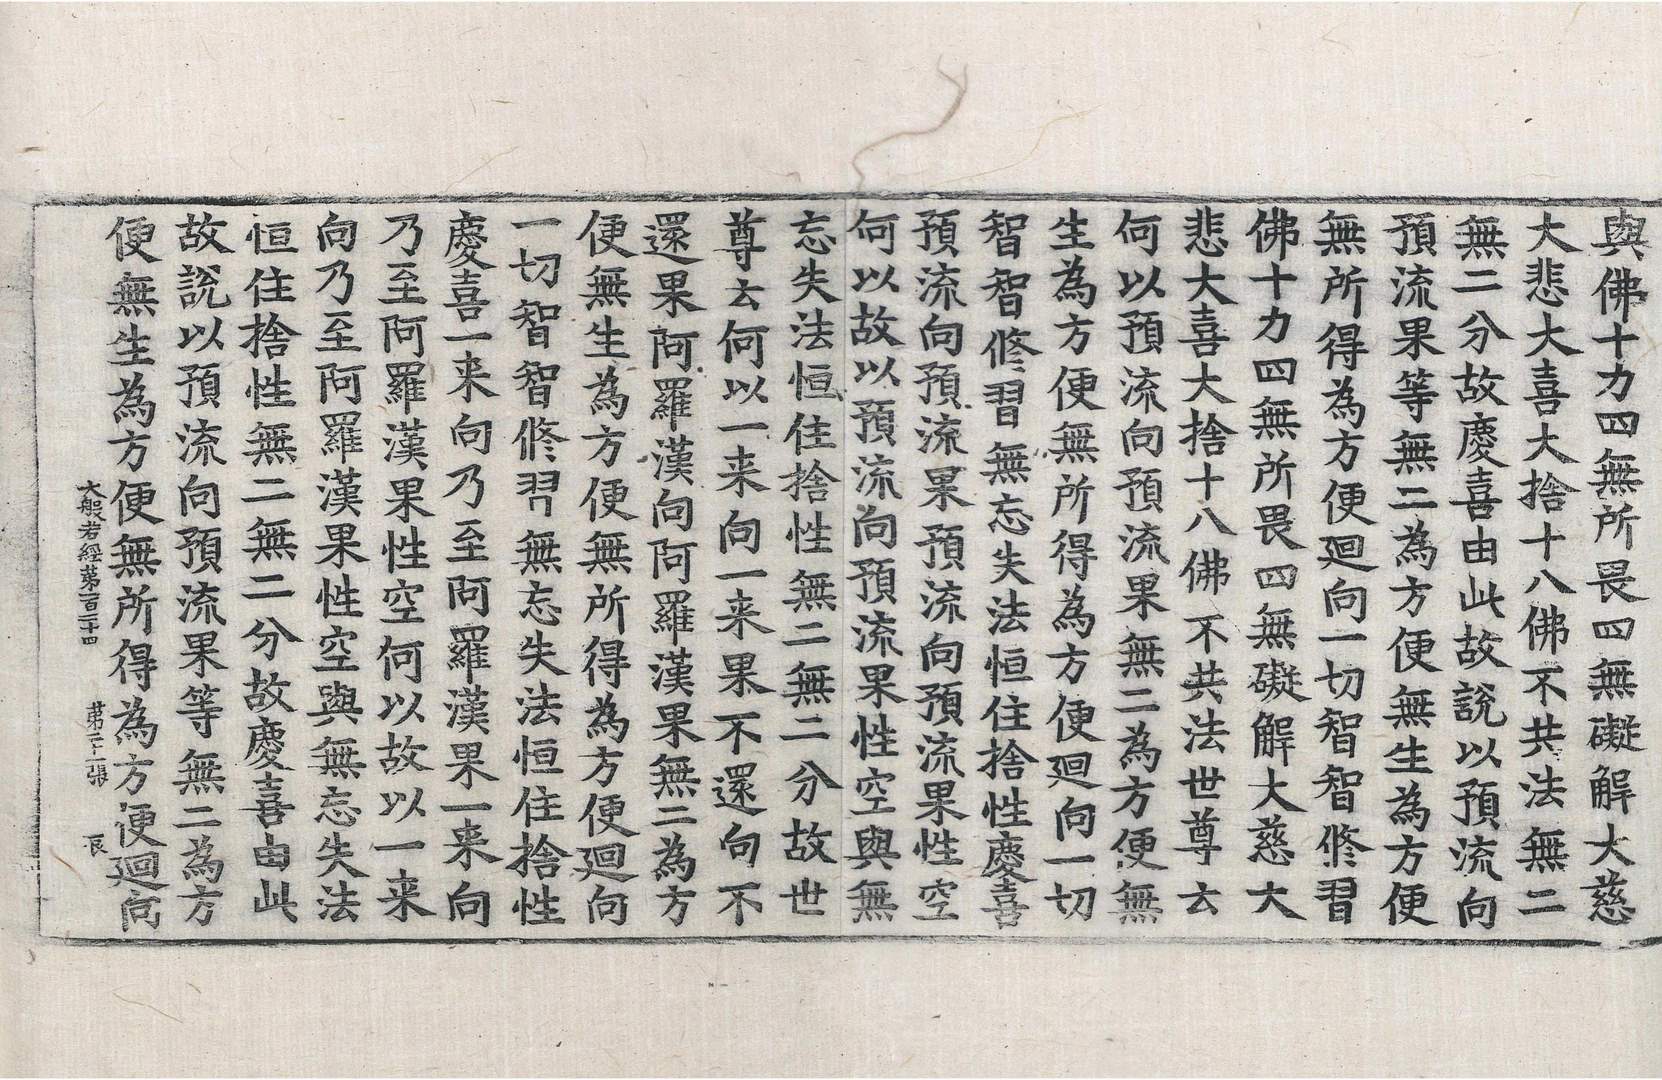 與佛十力四無所畏四無礙解大慈
大悲大喜大捨十八佛不共法無二
無二分故慶喜由此故說以預流向
預流果等無二為方便無生為方便
無所得為方便廻向一切智智修習
佛十力四無所畏四無礙解大慈大
悲大喜大捨十八佛不共法世尊云
何以預流向預流果無二為方便無
生為方便無所得為方便廻向一切
智智修習無忘失法恒住捨性慶喜
預流向預流果預流向預流果性空
何以故以預流向預流果性空與無
忘失法恒住捨性無二無二分故世
尊云何以一来向一来果不還向不
還果阿羅漢向阿羅漢果無二為方
便無生為方便無所得為方便廻向
一切智智修習無忘失法恒住捨性
慶喜一来向乃至阿羅漢果一来向
乃至阿羅漢果性空何以故以一来
向乃至阿羅漢果性空與無忘失法
恒住捨性無二無二分故慶喜由此
故說以預流向預流果等無二為方
便無生為方便無所得為方便廻向
大般若經苐一百二十四 苐二十二張 辰